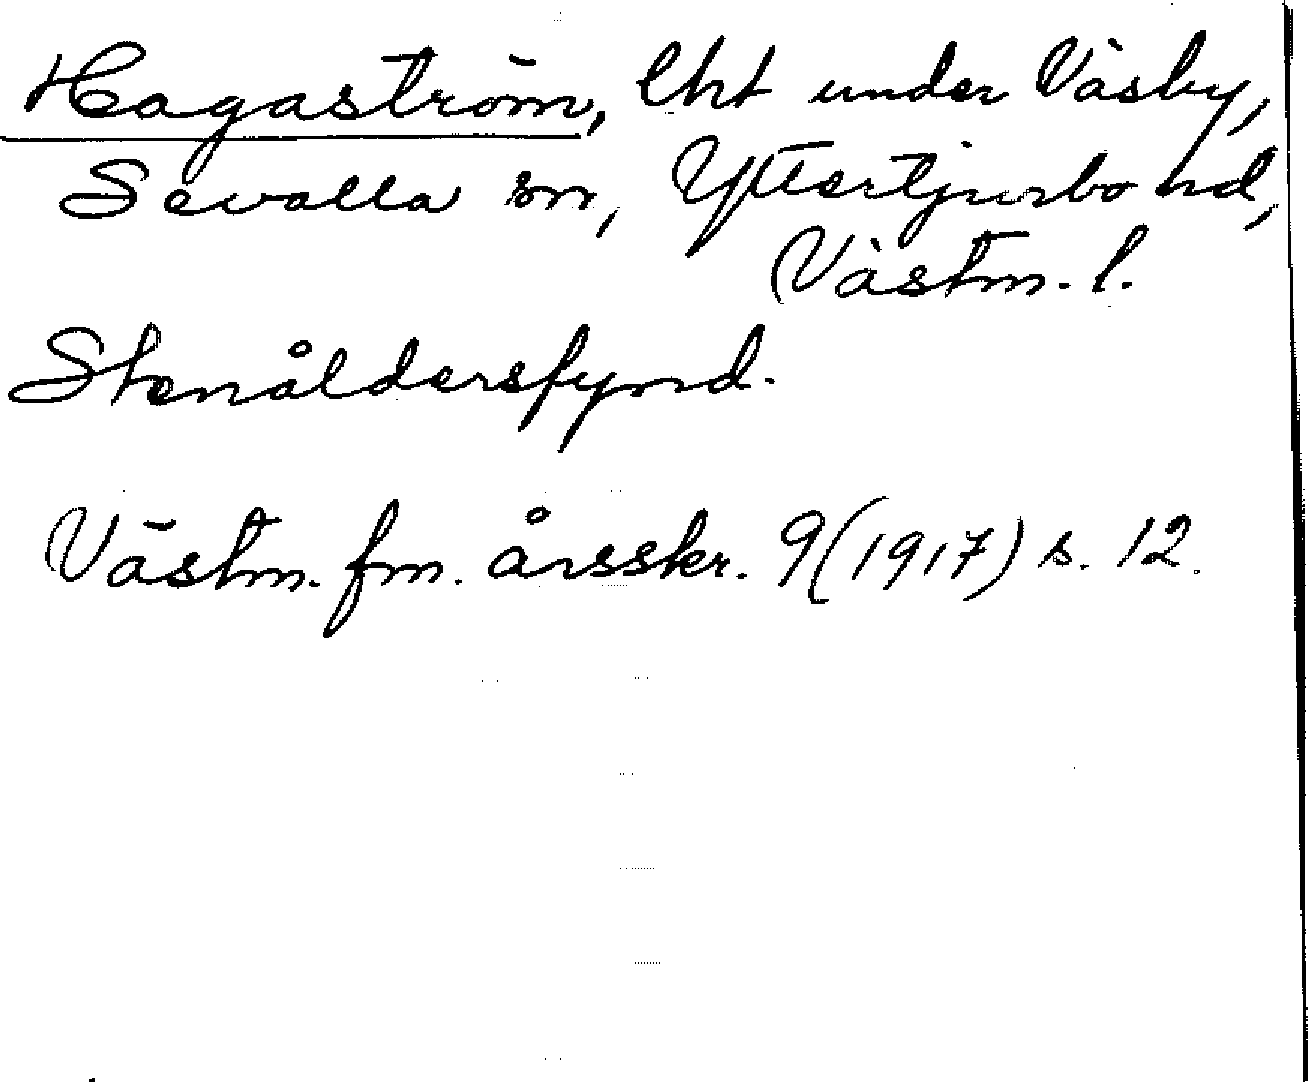 Hagaström, lht under Väsby,
Sevalla sn, Yttertjurbo hd,
Västm. l.
Stenåldersfynd.
Västm. fm. årsskr. 9 (1917) s. 12.